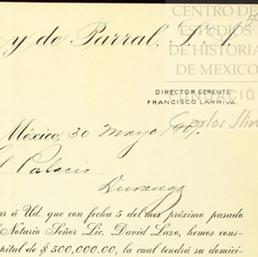 CENTRO DE
ESTUDIOS
DE HISTORIA
DE MEXICO
FUNDACIÓN
Carlos Slim
y de Parral, S. A.
DIRECTOR GERENTE
FRANCISCO LARRIVA.
México, 30 Mayo 1907.
Palacio
Durango
ar á Ud. que con fecha 5 del mes próximo pasado
Notario Señor Lic. David Lazo, hemos cons-
pital de $ 500,000.00, la cual tendrá su domici-